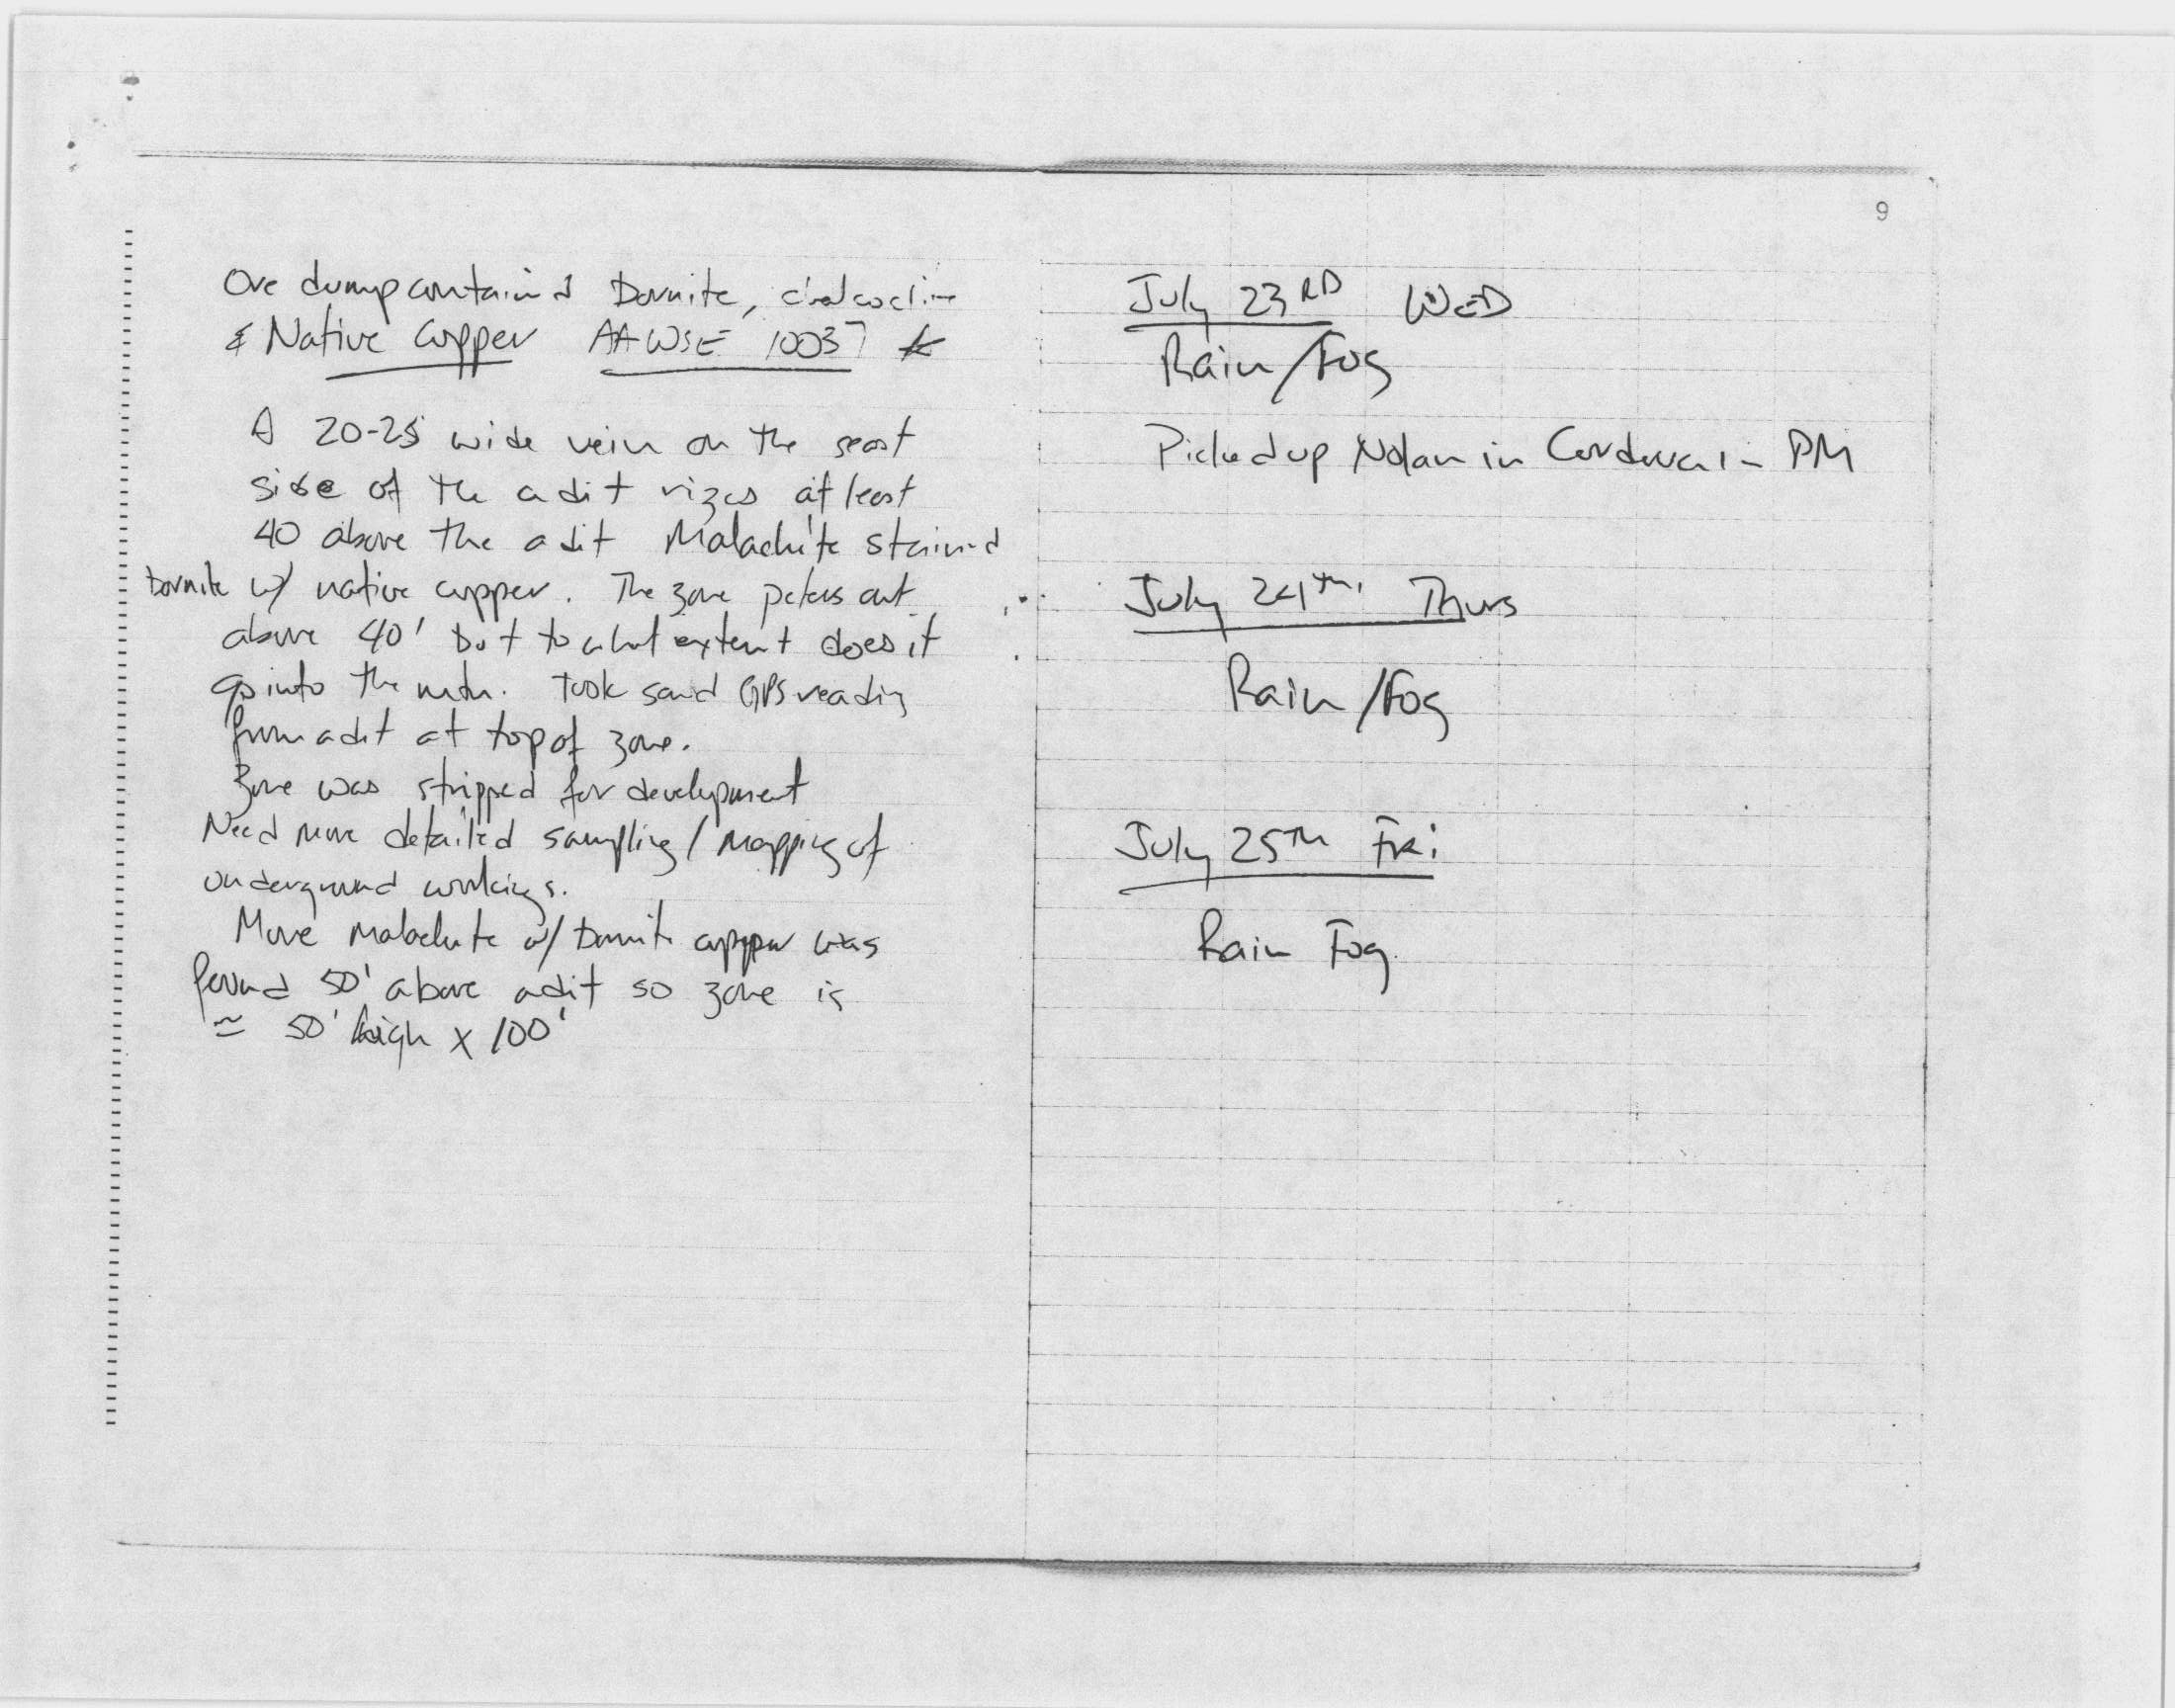 Ore dump contained Bornite, chalcocite
& Native Copper AAWSE 10037
A 20-25 wide vein on the
side of the adit rizes at least
40 above the adit Malachite stained
bornite w/ native copper. The zone peters out
above 40' but to what extent does it
go into the mtn. took said GPS reading
from adit at top of zone.
Zone was stripped for development
Need more detailed sampling / mapping of
underground workings.
More malachite w/ bornite copper was
found 50' above adit so zone is
≃ 50' high x 100'
9
July 23RD WED
Rain/Fog
Picked up Nolan in Cordova - PM
July 24th Thurs
Rain/Fog
July 25TH FRi
Rain Fog